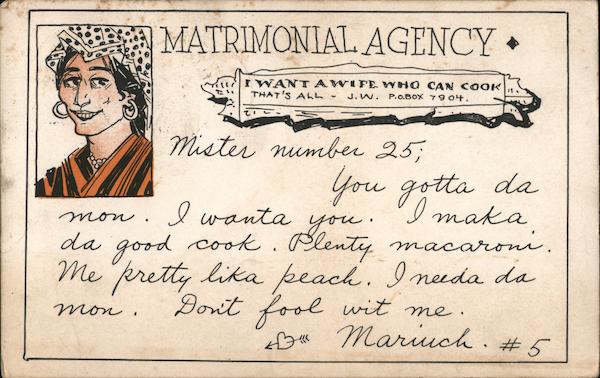 MATRIMONIAL AGENCY
I WANT A WIFE WHO CAN COOK
THAT'S ALL - J.W. P.O.BOX 7904.
Mister number 25;
You gotta da
mon. I wanta you. I maka
da good cook. Plenty macaroni.
Me pretty lika peach. I needa da
mon. Don't fool wit me.
Mariuch. #5